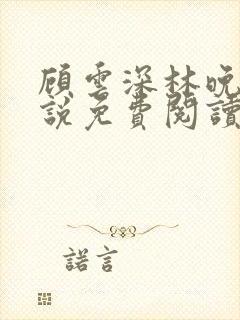 顾雲深林晚
說免費閱讀
諾言